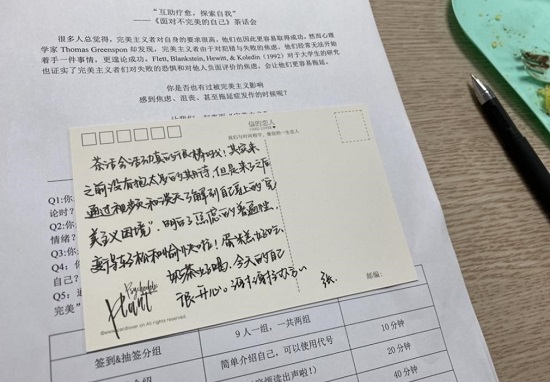 “互助疗愈，探索自我”
——《面对不完美的自己》茶话会
很多人总觉得，完美主义者对自身的要求很高，他们也因此更容易取得成功。然而心理
学家 Thomas Greenspon 却发现，完美主义者由于对犯错与失败的焦虑，他们经常无法开始
着手一件事情，更遑论成功。Flett, Blankstein, Hewitt, & Koledin（1992）对于大学生的研究
也证实了完美主义者们对失败的恐惧和对他人负面评价的焦虑，会让他们更容易拖延。
你是否也有过被完美主义影响
感到焦虑、沮丧、甚至拖延症发作的时候呢？
信的恋人
我们与时间相守，做信的一生恋人
茶话会活动真的很棒哦！其实来
之前没有抱太多的期待，但是来了之后
通过视频和漫天了解到自己身上的“完
美主义困境”，明白了焦虑的普遍性，
变得轻松和愉快啦！蛋糕好吃
奶茶好喝，今天的自己
很开心。谢谢
张
邮编：
All rights reserved.
Q1:你
论时？
Q2:你
情绪？
Q3:你
Q4:
自己？
Q5:
完美”
9 人一组，一共两组
签到&抽签分组
简单介绍自己，可以使用代号
10 分钟
20 分钟
40 分钟